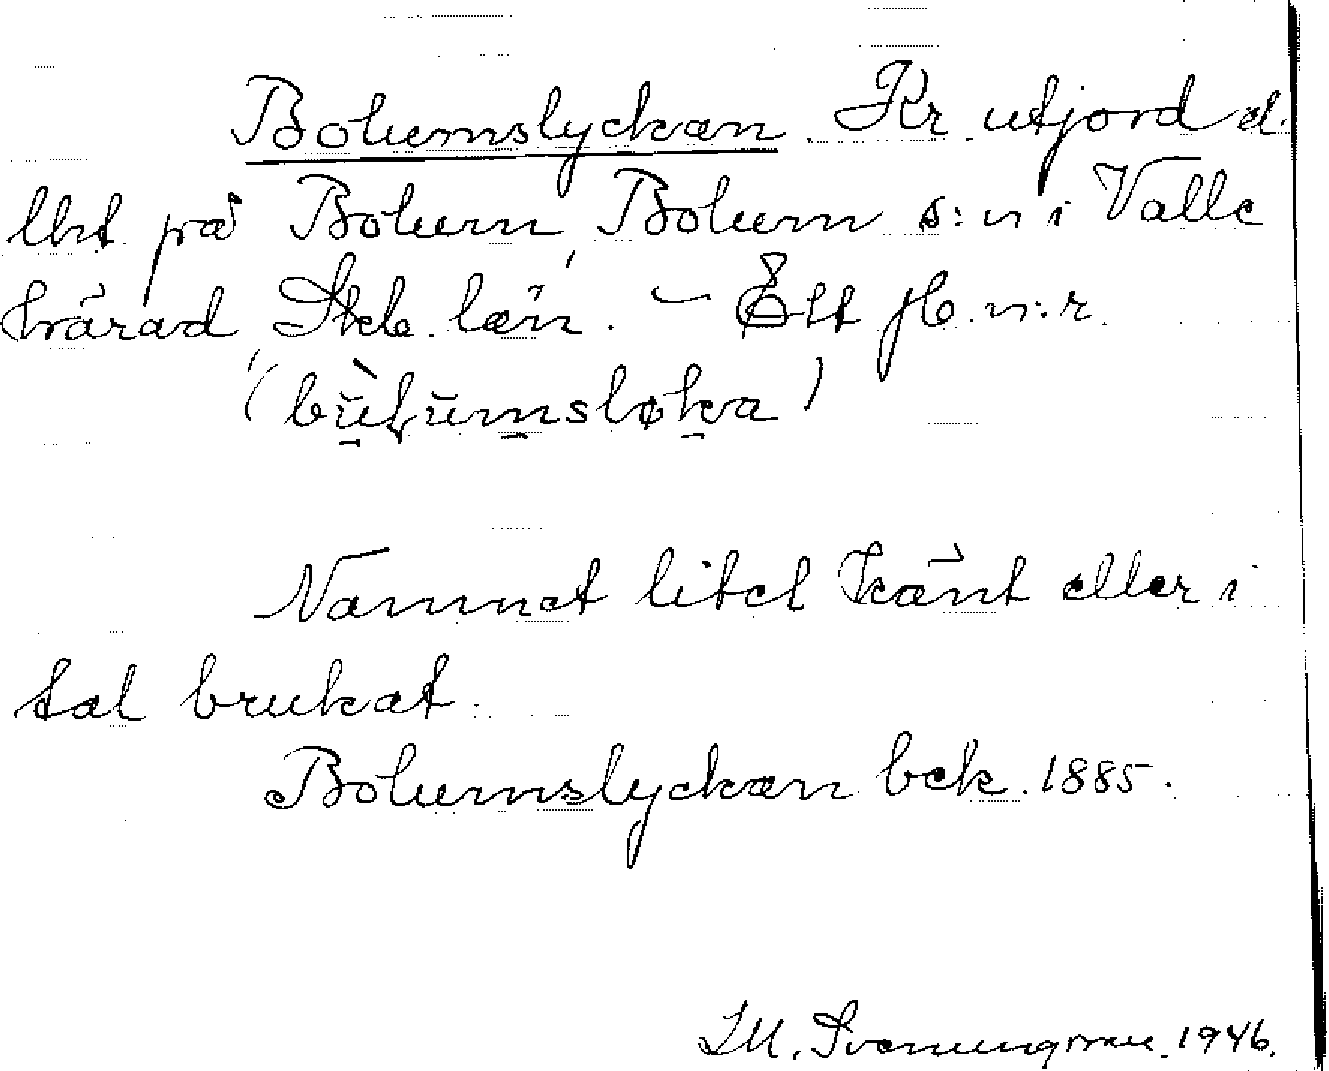 Bolumslyckan. Kr. utjord el.
lht på Bolum, Bolum s:n i Valle
härad, Skb. län. – Ett jb.n:r.
Namnet litet känt eller i
tal brukat.
Bolumslyckan bek. 1885.
1946.